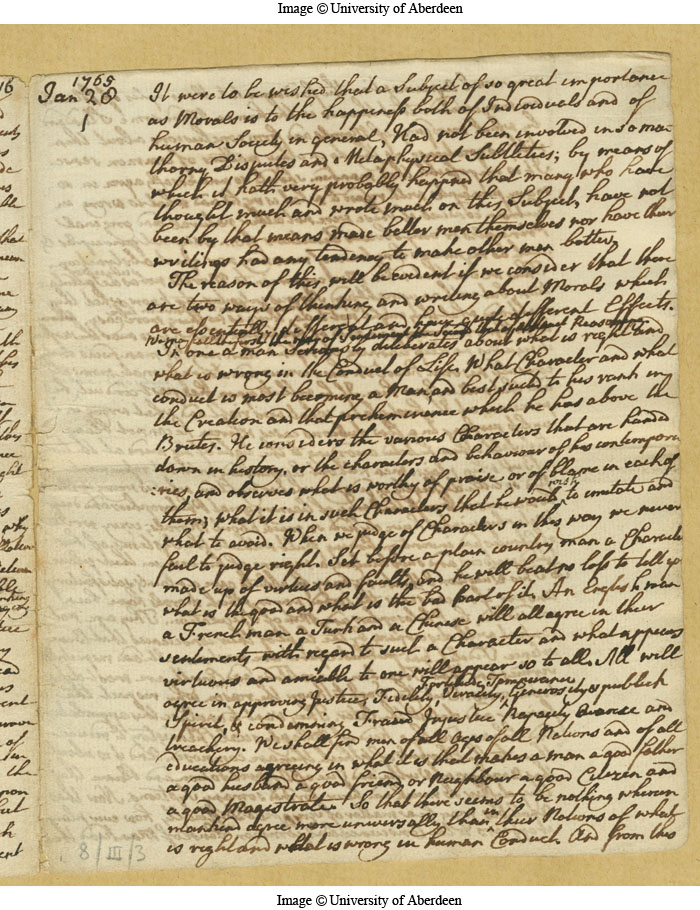 Image © University of Aberdeen
1765
Jan 28
1
It were to be wished that a Subject of so great importance
as Morals is to the happiness both of Individuals and of
human Society in general, Had not been involved in so ma
thorny Disputes and Metaphysical Subtleties; by means of
which it hath very probably happned that many who have
thought much and wrote much on this Subject, have not
been by that means made better men themselves nor have their
writings had any tendency to make other men better,
The reason of this, will be evident if we consider that there
are two ways of thinking and writing about Morals which
are essentially different and have quite different Effects.
We may call the first the way of and the last that of abstract Reasoning
In one a man Seriously deliberates about what is right and
what is wrong in the Conduct of Life. What Character and what
conduct is most becoming a Man, and best suited to his rank in
the Creation and that preheminence which he has above the
Brutes. He considers the various Characters that are handed
down in history. or the characters and behaviour of his contempora
:ries, and observes what is worthy of praise or of blame in each of
them; what it is in such Characters that he would wish to imitate and
what to avoid. When we judge of Characters in this way we never
fail to judge right. Set before a plain country man a Character
made up of virtues and faults, and he will be at no loss to tell you
what is the good and what is the bad part of it. An English man
a French man a Turk and a Chinese will all agree in their
sentiments with regard to such a Character and what appears
virtuous and amicable to one will appear so to all. All will
Fortitude, Temperance
agree in approving Justice, Fidelity, Veracity, Generosity & publick
Spirit, & condemning Fraud Injustice Rapacity Avarice and
treachery. We shall find men of all Ages of all Nations and of all
educations agreeing in what it is that makes a man a good father
a good husband a good friend or Neighbour a good Citizen and
a good Magistrate. So that there seems to be nothing wherein
mankind agree more universally than in their Notions of what
is right and what is wrong in human Conduct. And from this
8/III/3
Image © University of Aberdeen